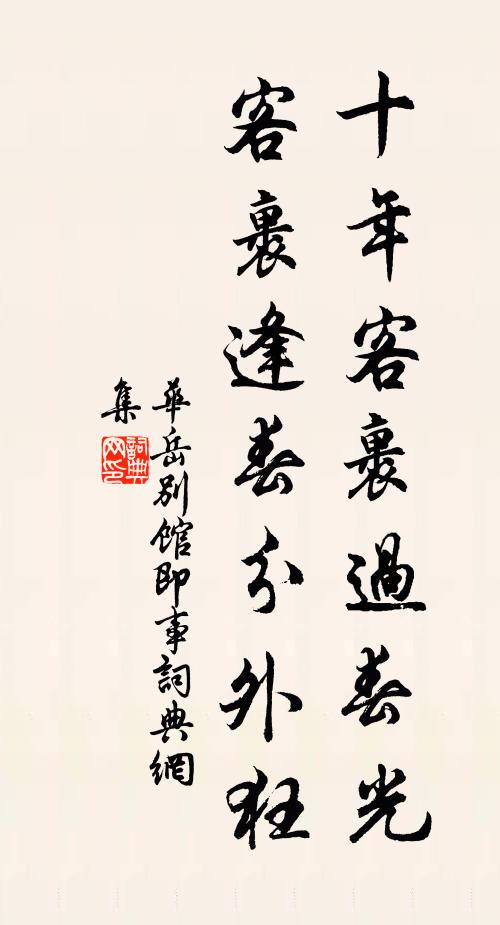 十年客裏過春光
客裏逢春分外狂
華岳別館即事詞典網
集
詞典
网印